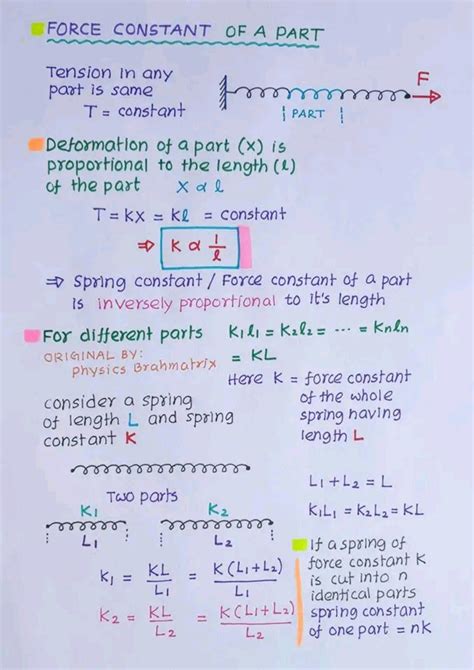 FORCE CONSTANT OF A PART
Tension in any
part is same
T = constant
F
PART
Deformation of a part (x) is
proportional to the length (l)
of the part x α l
T = kx = kl = constant
⇒ K α 1/l
⇒ Spring constant / Force constant of a part
is inversely proportional to it's length
For different parts K1l1 = K2l2 = ... = Knln
= KL
ORIGINAL BY:
Physics Brahmatrix
Here K = force constant
of the whole
spring having
length L
consider a spring
of length L and spring
constant K
Two parts
K1 K2
L1 L2
L1 + L2 = L
K1L1 = K2L2 = KL
K1 = KL/L1 = K(L1+L2)/L1
K2 = KL/L2 = K(L1+L2)/L2
If a spring of
force constant K
is cut into n
identical parts
spring constant
of one part = nK